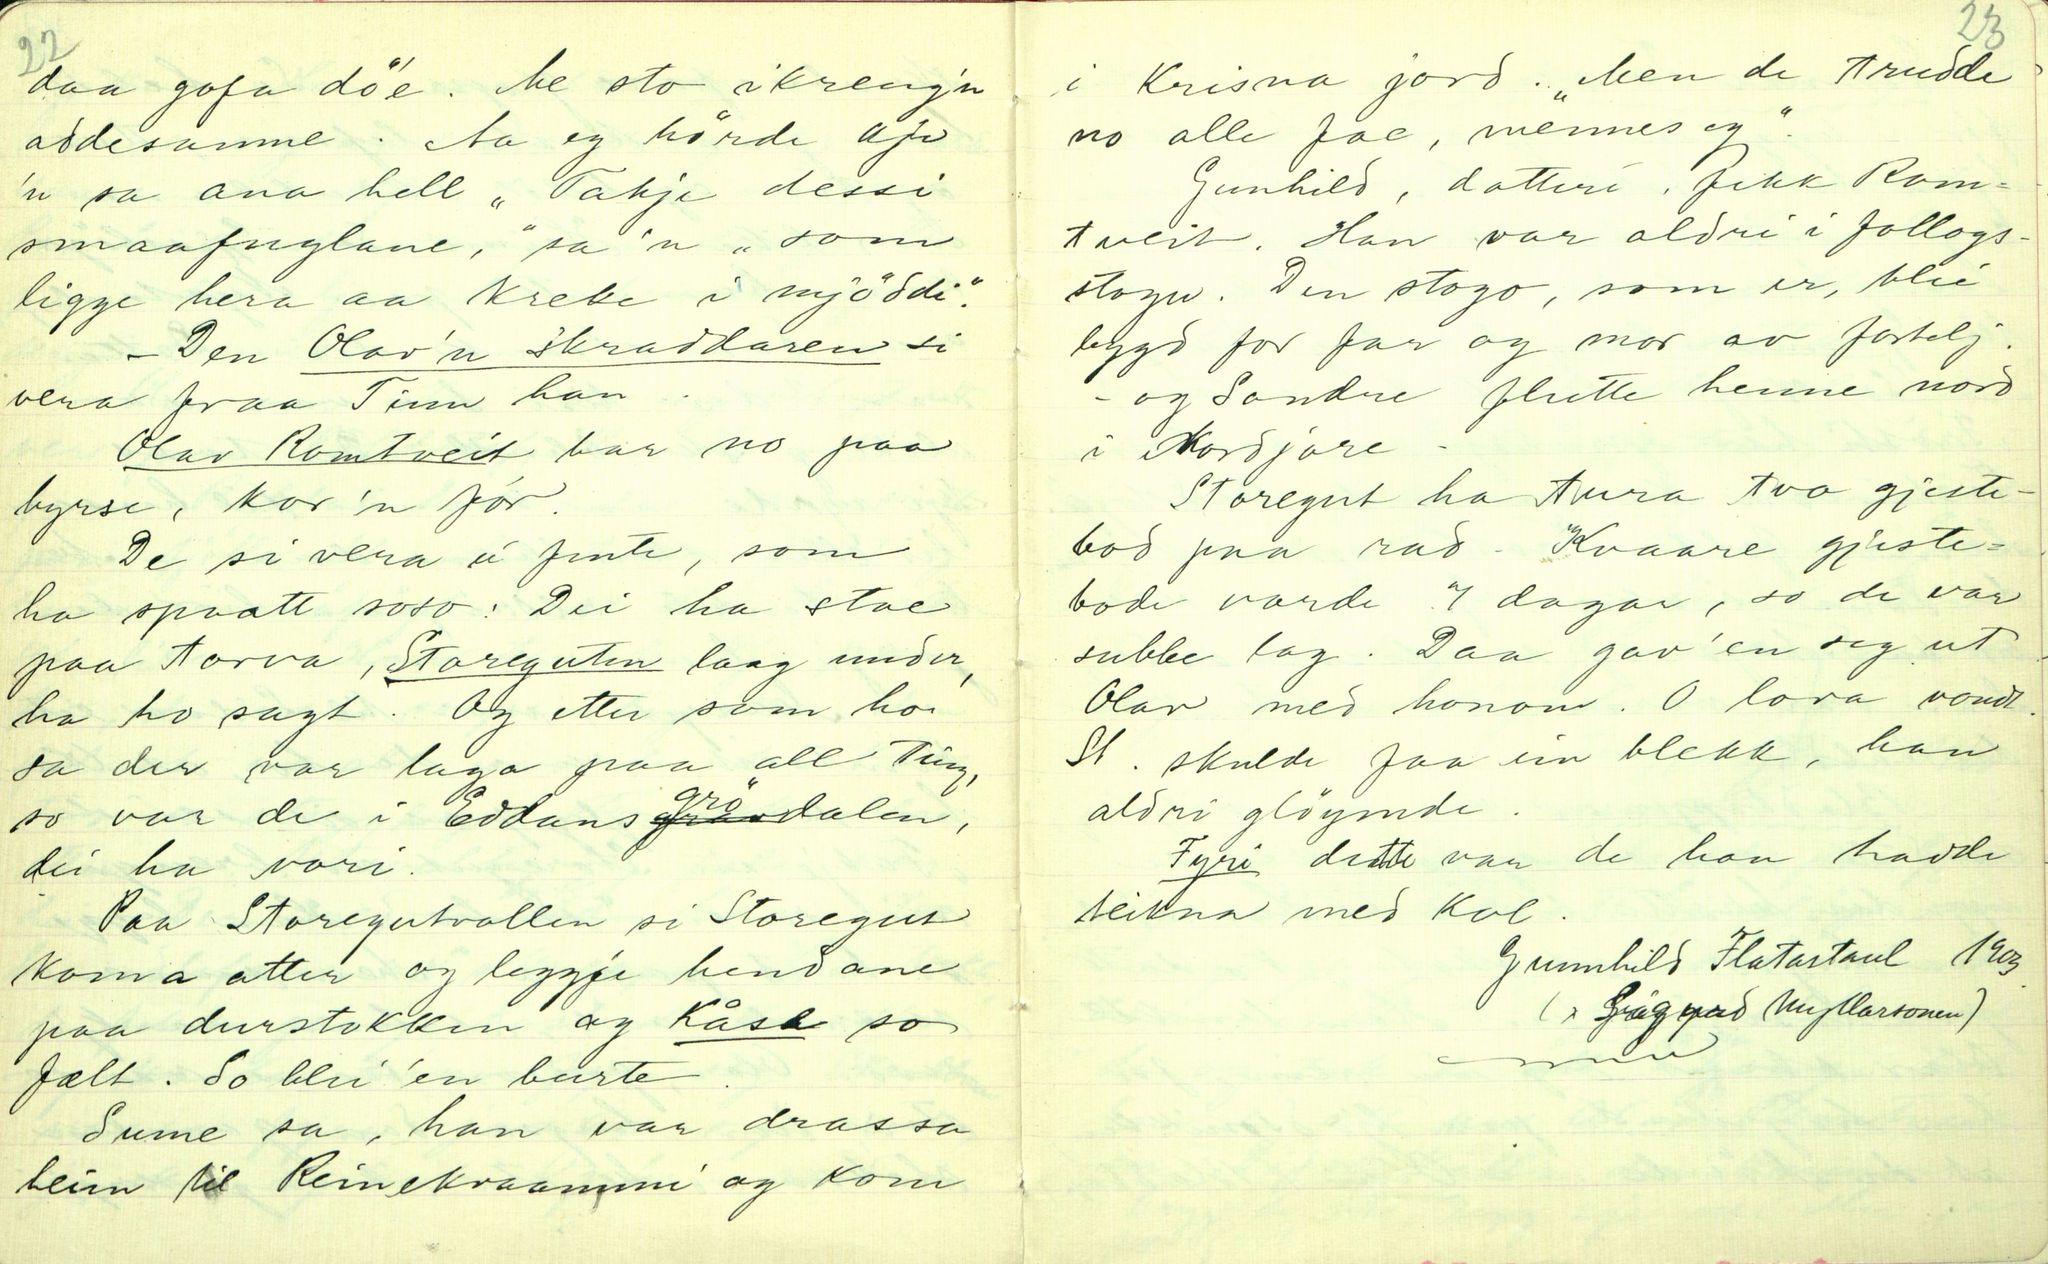 22
daa gofa dö'e. Me sto ikreng'n
addesamme. Aa eg hörde
'n sa ana hell „Takje dessi
smaafuglane,“ sa'n „som
ligge hera aa kreke i mjöddi“.
– Den Olav'n skraddaren si
vera fraa Tinn han.
Olav Romtveit bar no paa
byrse, kor'n fór.
De si vera ei jente, som
ha spaatt soso: Dei ha stae
paa torva, Storeguten laag under,
ha ho sagt. Og etter som ho
sa der var laga paa all ting,
so var de i Eddansgrödalen,
dei ha vori.
Paa Storegutvollen si Storegut
koma atter og leggje hendane
paa durstokken og kåsa so
fælt. So blei 'en burte.
Sume sa, han var drassa
heim til Reinekvaammi og kom
23
i Krisna jord. „Men de trudde
no alle fae, mennes eg“.
Gunhild, datteri, fekk Rom-
tveit. Han var aldri i follogs-
stogu. Den stogo, som er, blei
bygd for far og mor av fortelj.
– og Sondre flutte henne nord
i Nordjore –
Storegut ha tura tvo gjeste-
bod paa rad. Kvaare gjeste-
bode varde 7 dagar, so de var
subbe lag. Daa gav'en seg ut
Olav med honom. O lova vondt.
St. skulde faa ein blekk, han
aldri glöymde.
Fyri dette var de han hadde
teikna med kol.
Gunnhild Flatastaul 1903
(